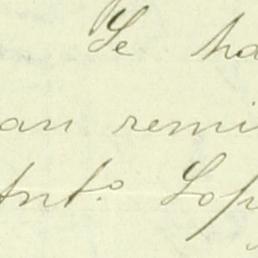 Se ha
an remi
Ant.º Lop